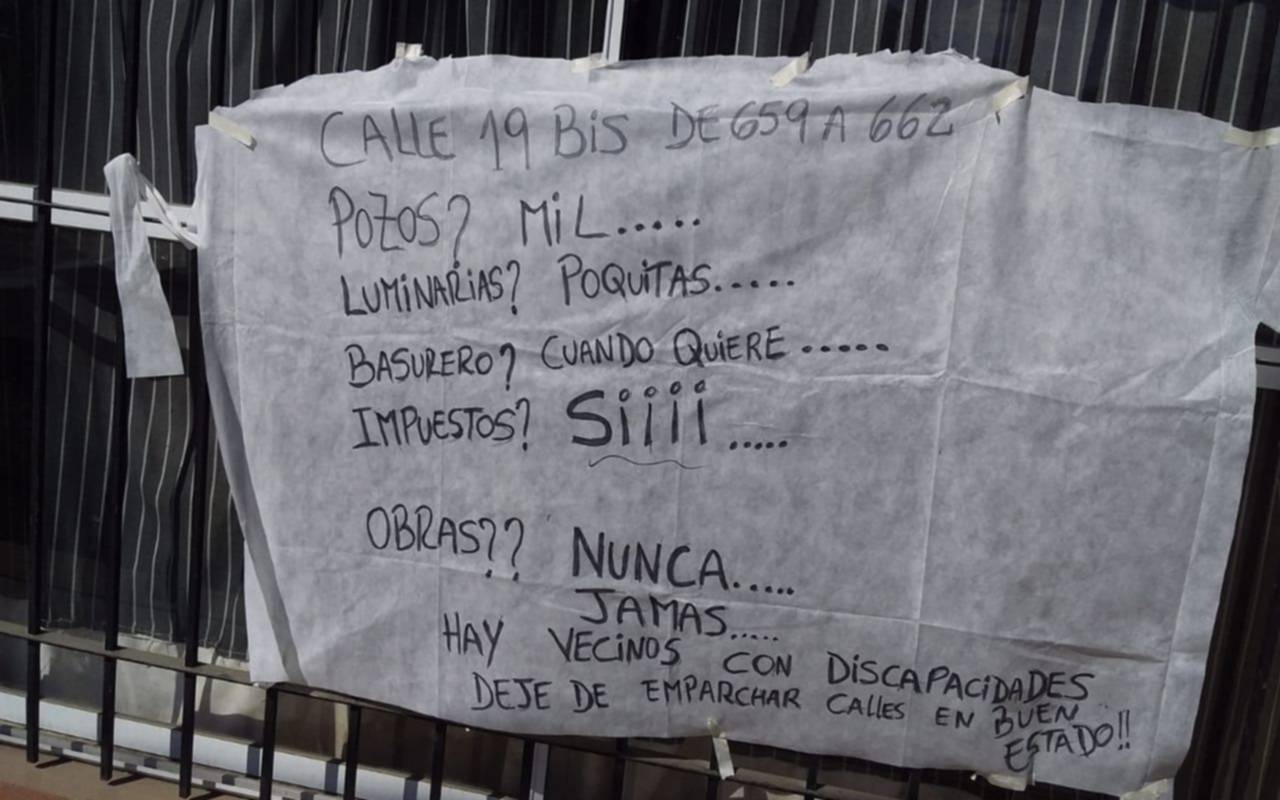 CALLE 19 BiS DE 659 A 662
POZOS? MiL.....
LUMiNARiAS? POQUiTAS.....
BASURERO? CUANDO QUiERE .....
IMPUESTOS? Siiii .....
OBRAS?? NUNCA.....
JAMAS.....
HAY VECiNOS CON DiSCAPACiDADES
DEJE DE EMPARCHAR CALLES EN BUEN
ESTADO!!